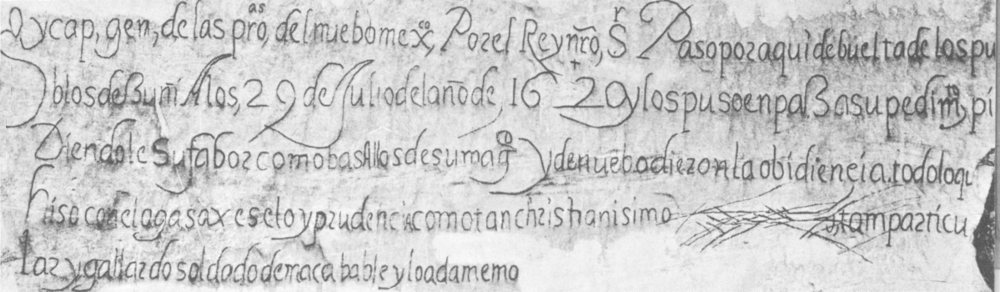 y cap, gen, de las pro^as, del nuebo mex^co, Por el Rey nr̃o, S^r Paso por aqui de buelta de los pu
blos de Zuñi A los, 29 de Julio del año de, 1620 y los puso en paz asu pedim^to, pi
Diendole Su fabor como basAllos de su mag^d y de nuebo dieron la obidiencia. todo lo qu
hiso con el agasaxe selo y prudencia como tan christianisimo tam particu
Lar y gallardo soldado de inacabable y loada memo